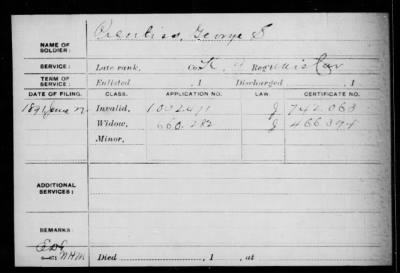 Prentiss, George S
NAME OF SOLDIER:
SERVICE: Late rank, Co. K, 9 Reg't Mis Cav
TERM OF SERVICE: Enlisted , 1 Discharged , 1
DATE OF FILING. CLASS. APPLICATION NO. LAW. CERTIFICATE NO.
1891 June Invalid, 1032471 J 742.063
Widow, 660.282 J 466.394
Minor,
ADDITIONAL SERVICES:
REMARKS:
Died , 1 , at